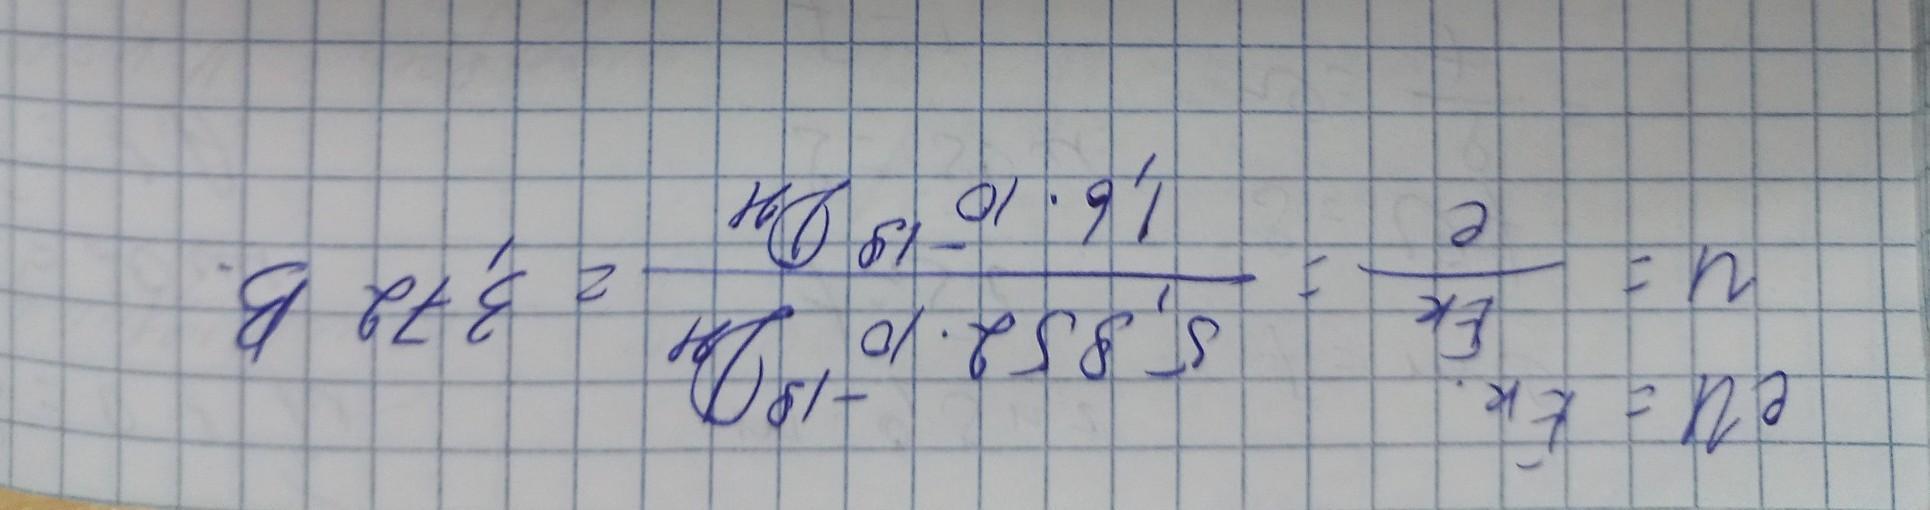 eU = Eк.
U = Eк / e = 5,852 · 10^-19 Дж / 1,6 · 10^-19 Дж = 3,72 В.